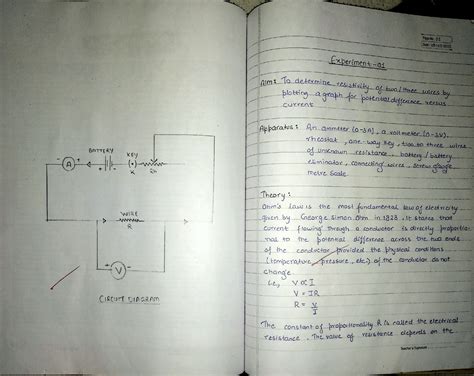 BATTERY
KEY
- A +
K
Rh
WIRE
R
V
CIRCUIT DIAGRAM
Experiment-01
Aim: To determine resistivity of two/three wires by
plotting a graph for potential difference versus
current
Apparatus: An ammeter (0-3A), a voltmeter (0-3V),
rheostat, one-way key, two to three wires
of unknown resistance, battery/battery
eliminator, connecting wires, screw gauge
metre scale.
Theory:
Ohm's Law is the most fundamental law of electricity
given by George Simon Ohm in 1828. It states that
current flowing through a conductor is directly proportio-
nal to the potential difference across the two ends
of the conductor provided the physical conditions
(temperature, pressure, etc.) of the conductor do not
change
i.e, V ∝ I
V = IR
R = V/I
The constant of proportionality R is called the electrical
resistance. The value of resistance depends on the
Teacher's Signature